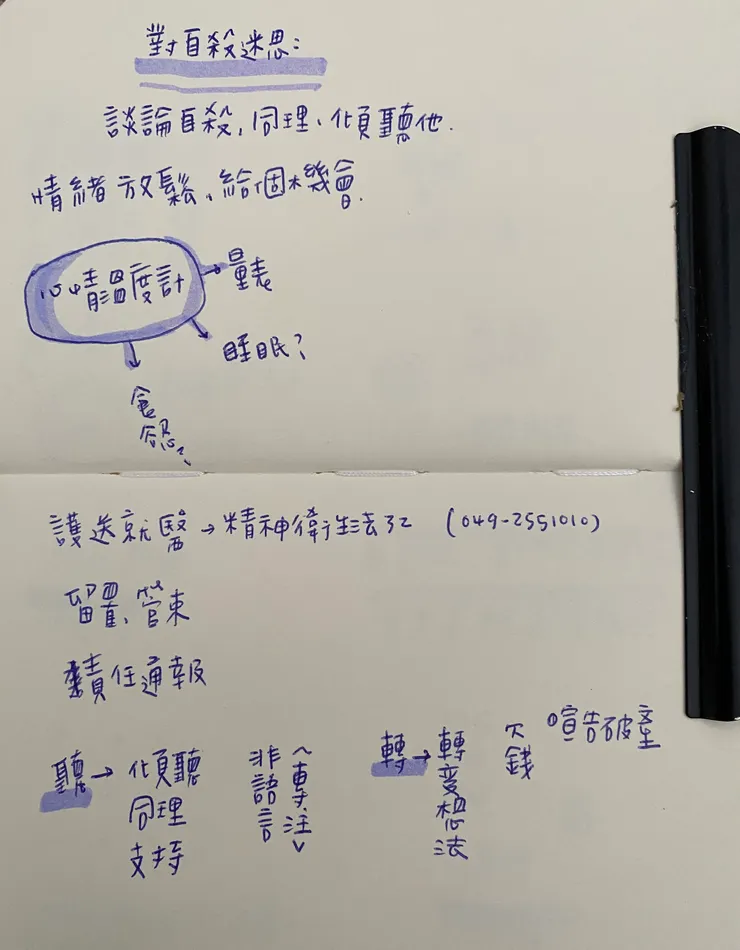 對自殺迷思:
談論自殺,同理、傾聽他.
情緒放鬆、給個機會.
心情溫度計→量表
睡眠?
食慾?
護送就醫→精神衛生法32 (049-2551010)
留置、管束
責任通報
聽→傾聽
同理
支持
非語言
<專注>
轉→轉變想法
欠錢
宣告破產